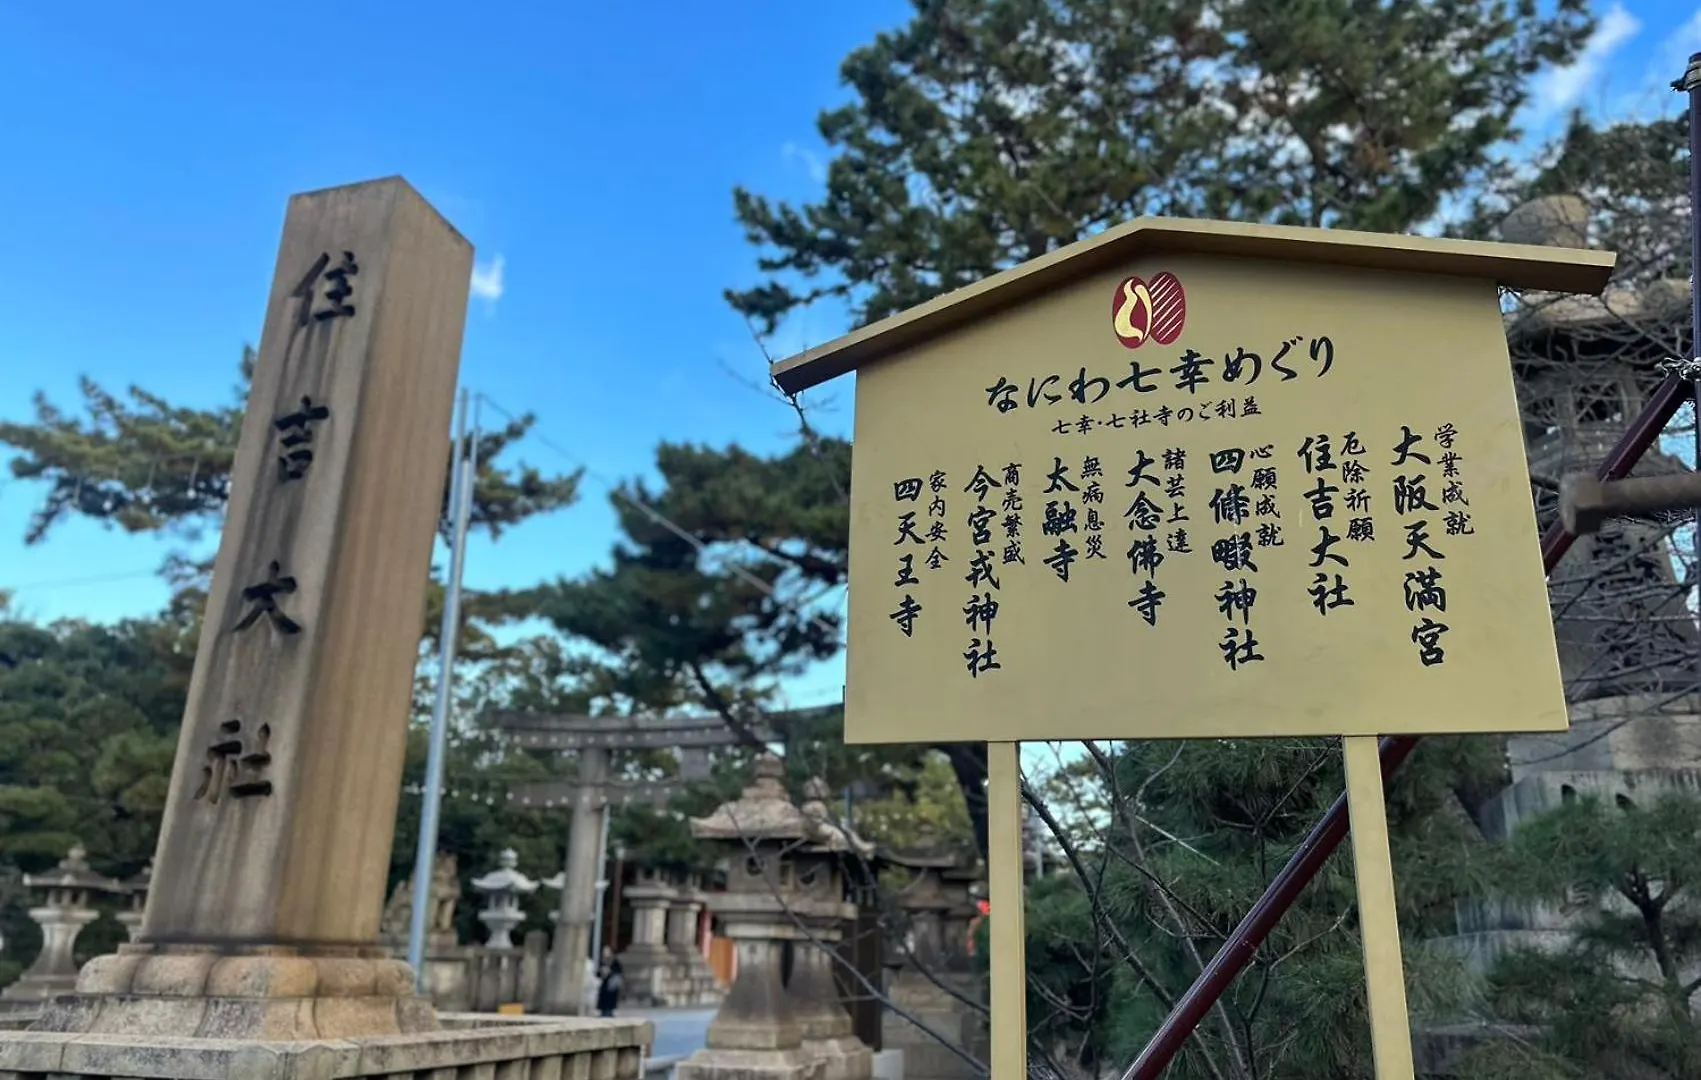 住吉大社
なにわ七幸めぐり
七幸・七社寺のご利益
学業成就
大阪天満宮
厄除祈願
住吉大社
心願成就
四條畷神社
諸芸上達
大念佛寺
無病息災
太融寺
商売繁盛
今宮戎神社
家内安全
四天王寺